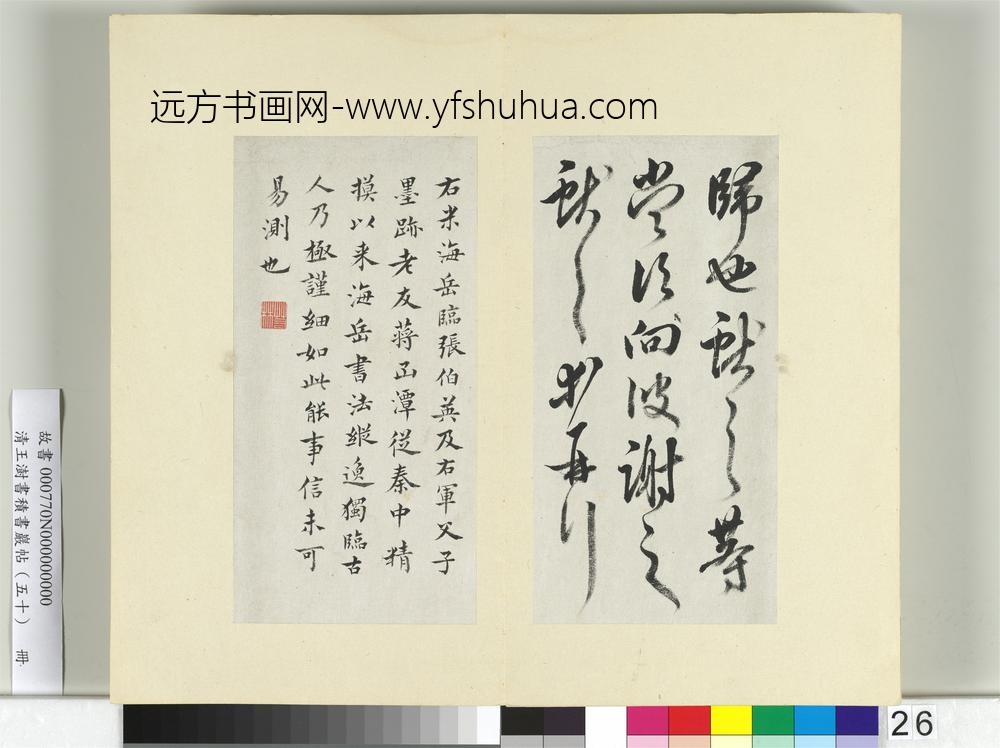 远方书画网-www.yfshuhua.com
歸也獻之等
當須向彼謝之
獻之再
右米海岳臨張伯英及右軍父子
墨跡老友蔣函潭從秦中精
摸以来海岳書法縱逸獨臨古
人乃極謹細如此能事信未可
易測也
故書 000770N000000000
清王澍書積書巖帖（五十） 冊
26